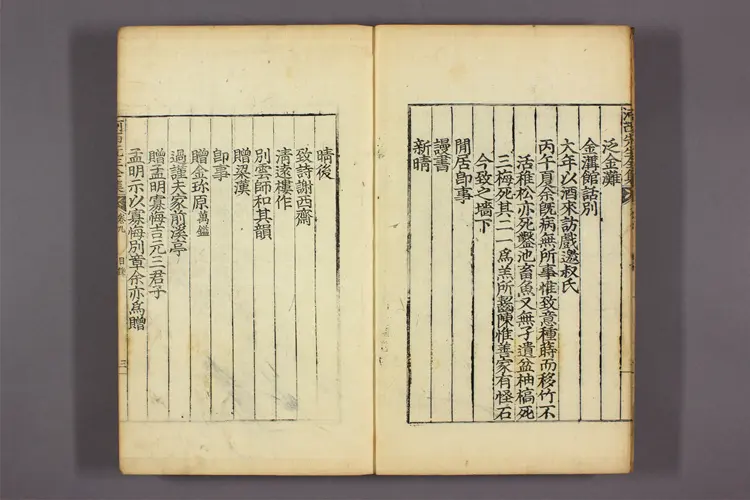 泛金灘
金灘館話別
大年以酒來訪戲邀叔氏
丙午夏余旣病無所事惟致意種蒔而移竹不
活稚松亦死鑿池畜魚又無子遺盆柚槁死
三梅死其二一爲羔所齧陳惟善家有怪石
今致之墻下
閒居卽事
謾書
新晴
晴後
致詩謝西齋
清遠樓作
別雲師和其韻
贈梁漢
卽事
贈金珎原萬鎰
過謹夫家前溪亭
贈孟明寡悔吉元三君子
孟明示以寡悔別章余亦爲贈